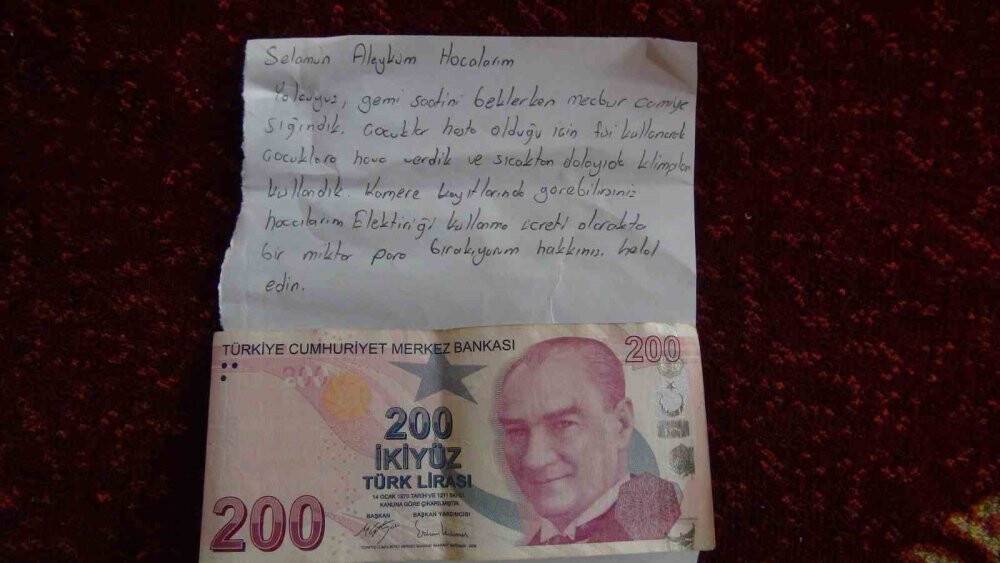 Selamün Aleyküm Hocalarım
Yolcuyuz, gemi saatini beklerken mecbur camiye
sığındık. Çocuklar hasta olduğu için fişi kullanarak
çocuklara hava verdik ve sıcaktan dolayıda klimaları
kullandık. Kamera kayıtlarında görebilirsiniz
hocalarım Elektiriği kullanma ücreti olarakta
bir miktar para bırakıyorum hakkınızı helal
edin.
TÜRKİYE CUMHURİYET MERKEZ BANKASI
200
200
İKİYÜZ
TÜRK LİRASI
14 OCAK 1970 TARİH VE 1211 SAYILI
KANUNA GÖRE ÇIKARILMIŞTIR.
BAŞKAN
BAŞKAN YARDIMCISI
200